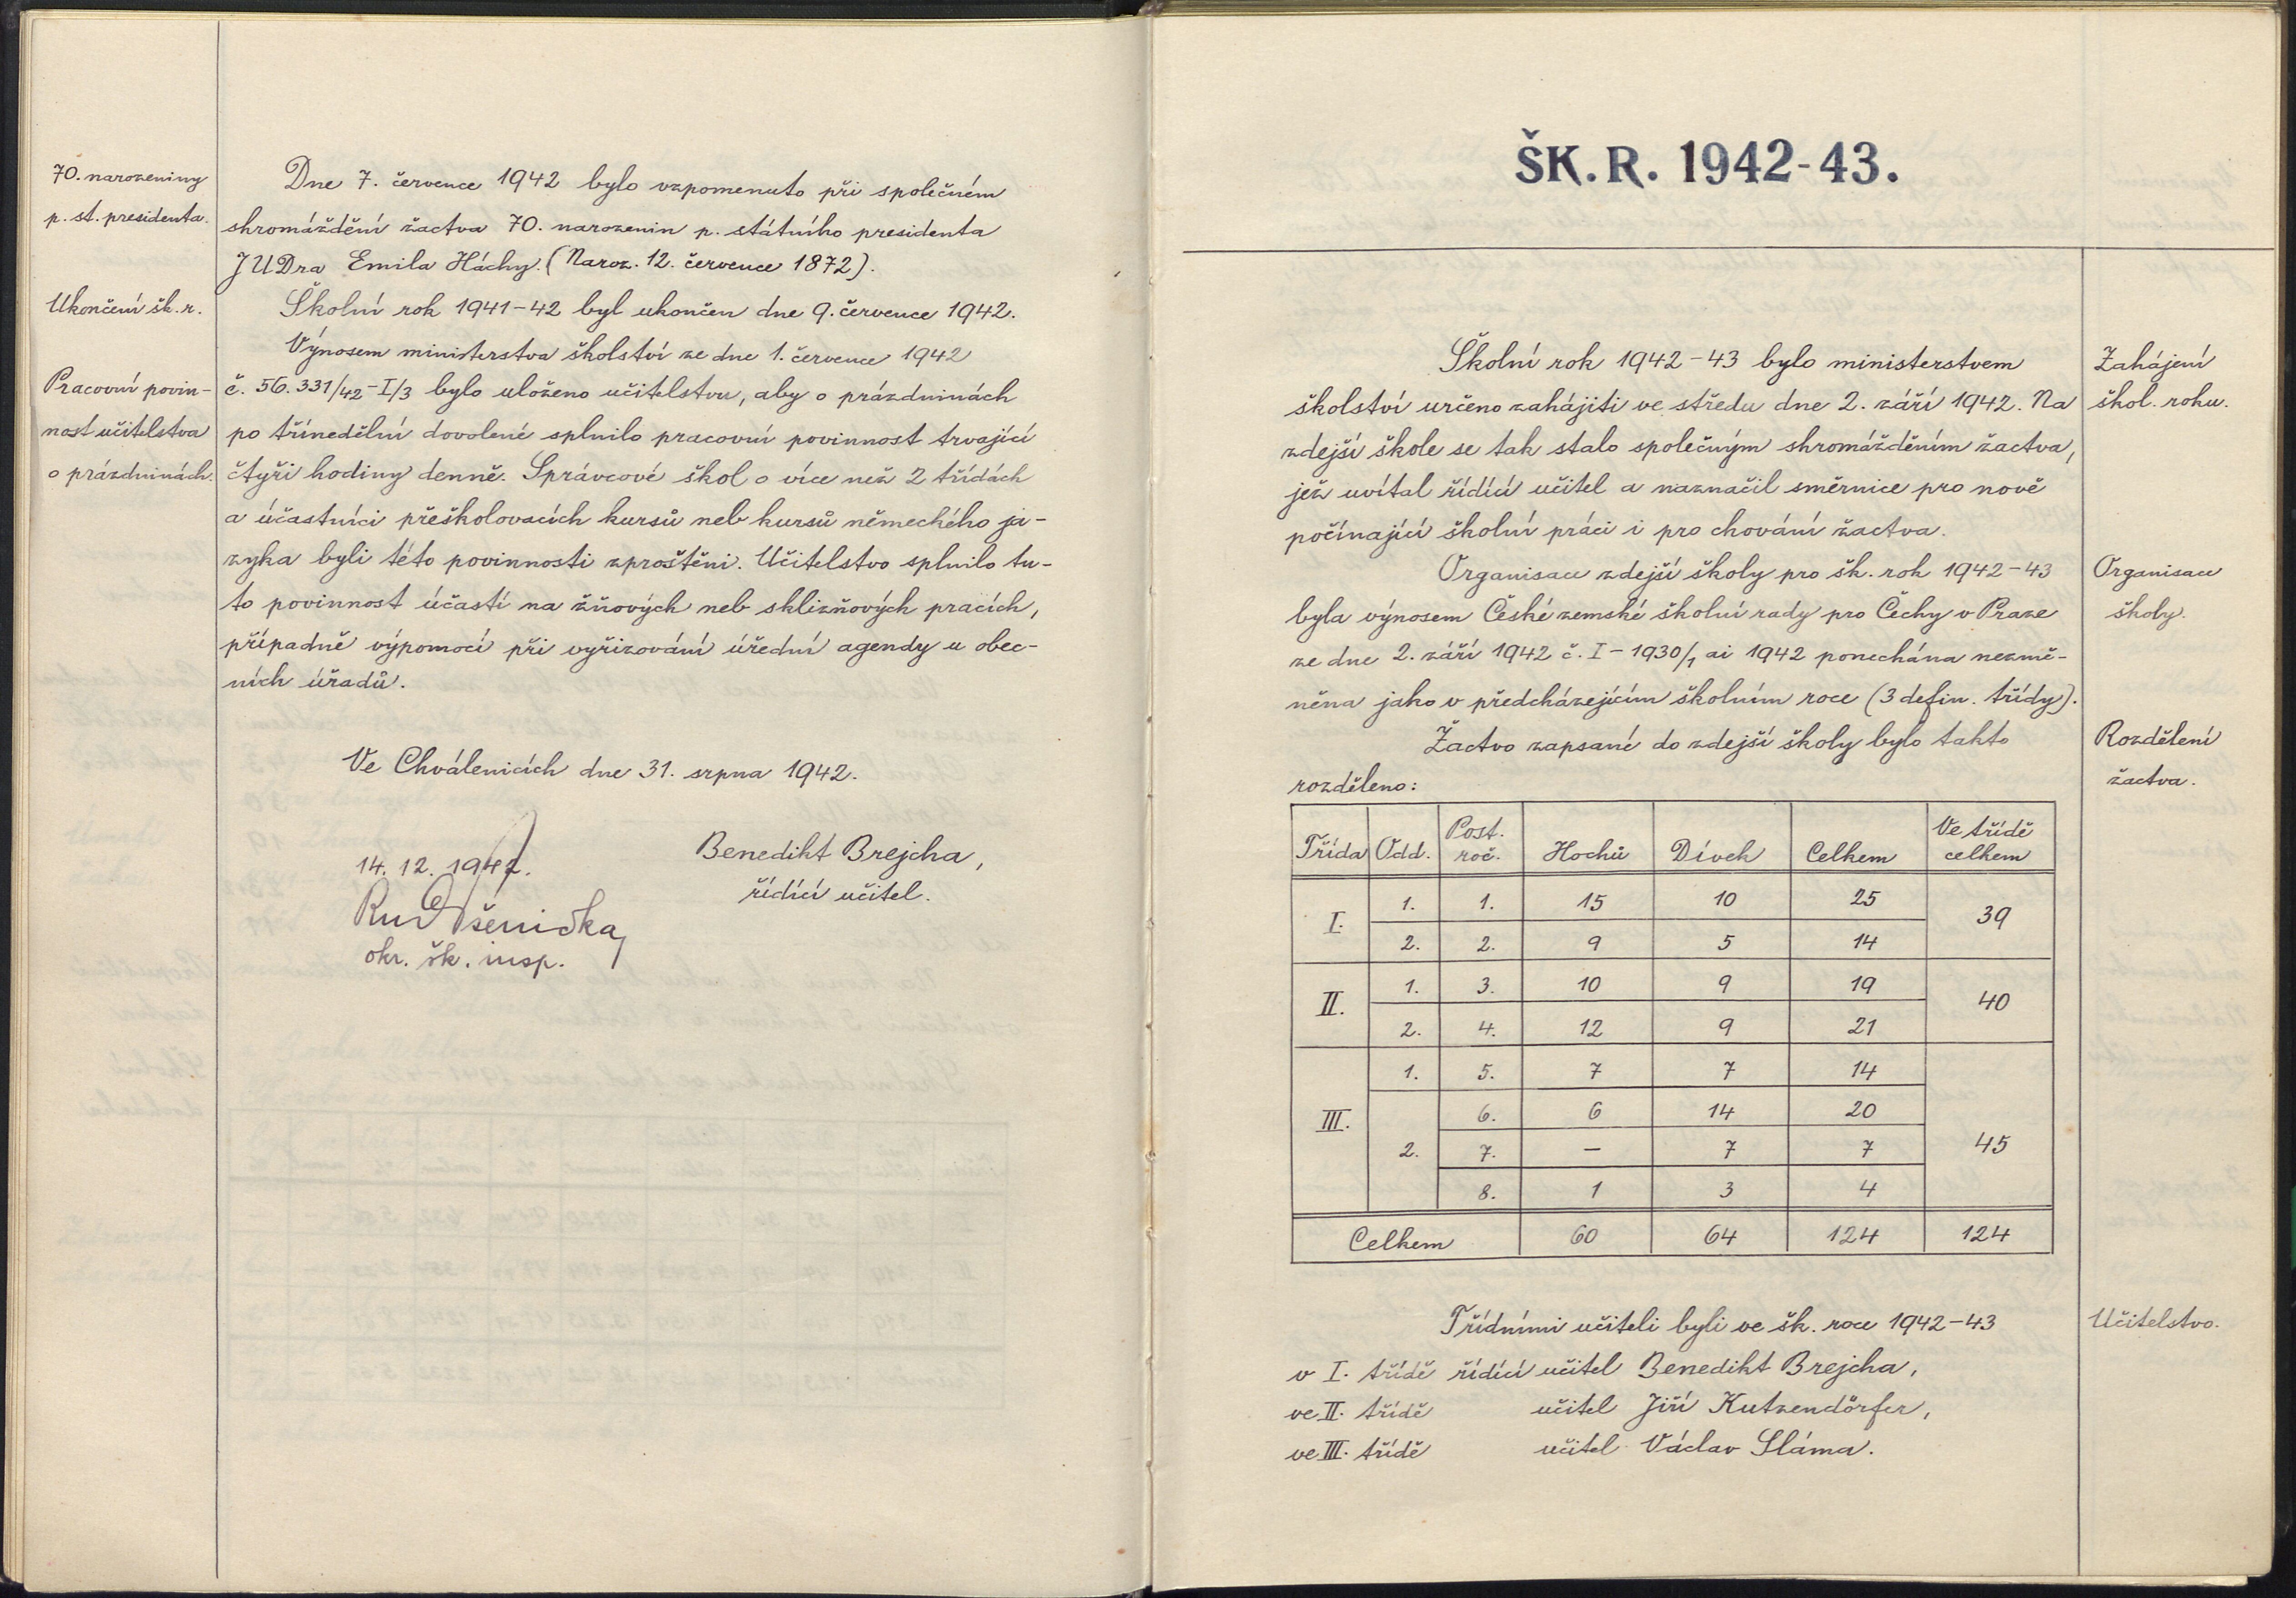 70. narozeniny
p. st. presidenta.
Dne 7. července 1942 bylo vzpomenuto při společném
shromáždění žactva 70. narozenin p. státního presidenta
JUDra Emila Háchy. (Naroz. 12. července 1872).
Ukončení šk. r.
Školní rok 1941-42 byl ukončen dne 9. července 1942.
Výnosem ministerstva školství ze dne 1. července 1942
Pracovní povin-
nost učitelstva
o prázdninách.
č. 56.331/42-I/3 bylo uloženo učitelstvu, aby o prázdninách
po třínedělní dovolené splnilo pracovní povinnost trvající
čtyři hodiny denně. Správcové škol o více než 2 třídách
a účastníci přeškolovacích kursů neb kursů německého ja-
zyka byli této povinnosti zproštěni. Učitelstvo splnilo tu-
to povinnost účastí na žňových neb sklizňových pracích,
případně výpomocí při vyřizování úřední agendy u obec-
ních úřadů.
Ve Chválenicích dne 31. srpna 1942.
Benedikt Brejcha,
řídící učitel.
14. 12. 1942.
Rud Pšenička
okr. šk. insp.
ŠK. R. 1942-43.
Školní rok 1942-43 bylo ministerstvem
školství určeno zahájiti ve středu dne 2. září 1942. Na
zdejší škole se tak stalo společným shromážděním žactva,
jež uvítal řídící učitel a naznačil směrnice pro nově
počínající školní práci i pro chování žactva.
Zahájení
škol. roku.
Organisace zdejší školy pro šk. rok 1942-43
byla výnosem České zemské školní rady pro Čechy v Praze
ze dne 2. září 1942 č. I-1930/1 ai 1942 ponechána nezmě-
něna jako v předcházejícím školním roce (3 defin. třídy).
Organisace
školy.
Žactvo zapsané do zdejší školy bylo takto
rozděleno:
Rozdělení
žactva.
Třída Odd. Post. roč. Hochů Dívek Celkem Ve třídě celkem
I. 1. 1. 15 10 25 39
2. 2. 9 5 14
II. 1. 3. 10 9 19 40
2. 4. 12 9 21
III. 1. 5. 7 7 14 45
2. 6. 6 14 20
7. - 7 7
8. 1 3 4
Celkem 60 64 124 124
Třídními učiteli byli ve šk. roce 1942-43
Učitelstvo.
v I. třídě řídící učitel Benedikt Brejcha,
ve II. třídě učitel Jiří Kutzendörfer,
ve III. třídě učitel Václav Sláma.